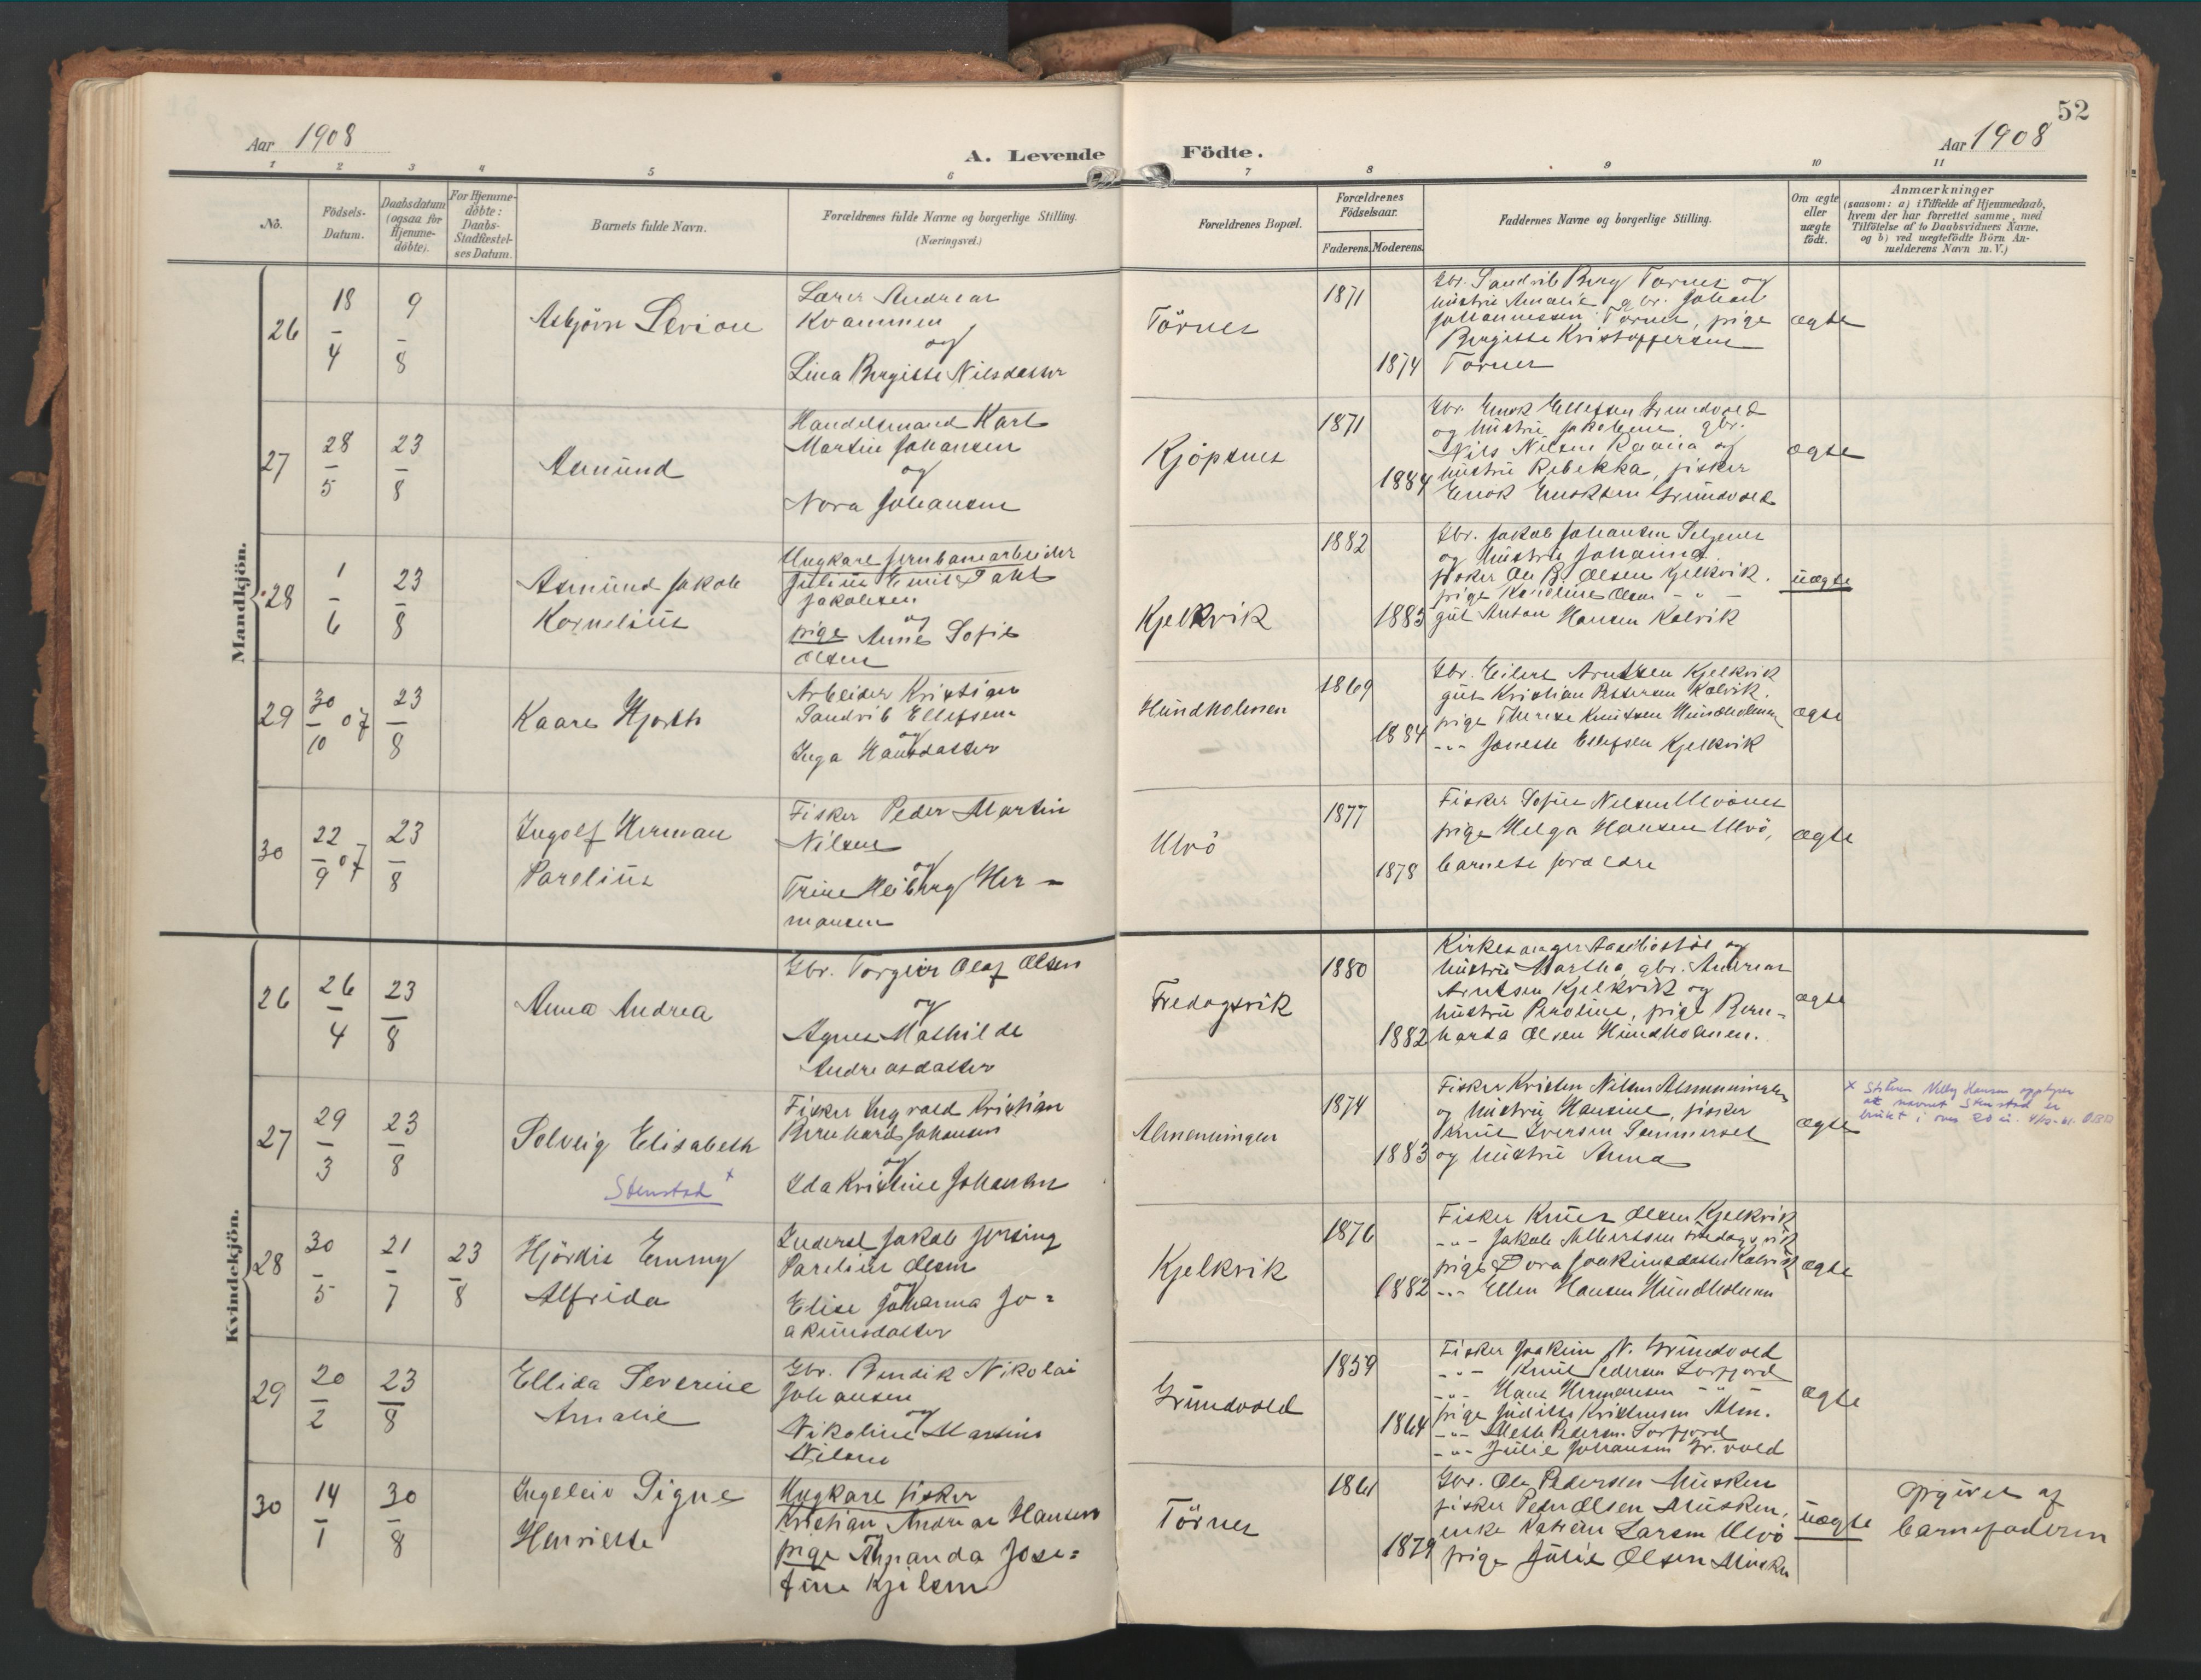 52
Aar 1908
A. Levende Födte.
Aar 1908
1 2 3 4 5 6 7 8 9 10 11
No.
Födsels-
Datum.
Daabsdatum
(ogsaa for
Hjemme-
döbte).
For Hjemme-
döbte:
Daabs-
Stadfæstel-
ses Datum.
Barnets fulde Navn.
Forældrenes fulde Navne og borgerlige Stilling.
(Næringsvei.)
Forældrenes Bopæl.
Forældrenes
Födselsaar.
Faderens. Moderens.
Faddernes Navne og borgerlige Stilling.
Om ægte
eller
uægte
födt.
Anmærkninger
(saasom: a) i Tilfælde af Hjemmedaab,
hvem der har forrettet samme, med
Tilföielse af to Daabsvidners Navne.
og b) ved uægtefödte Börn An-
melderens Navn m. V.)
Mandkjön.
26
18/4
9/8
Asbjörn
Lærer Andreas
Kvammen
og
Lina Bergitte Nilsdatter
Törnes
1871
1874
Gbr. Sandvik Berg Tornes og
hustru Amalie, gbr. Johan
Johannessen Tornes, pige
Bergitte Kristoffersen
Tornes
ægte
27
28/5
23/8
Asmund
Handelsmand Karl
Martin Johansen
og
Nora Johansen
Kjöpsnes
1871
1884
Gbr. Enok Ellefsen Grundvold
og hustru Jakobine, gbr.
Nils Nilsen og
hustru Rebekka, fisker
Enok Enoksen Grundvold
ægte
28
1/6
23/8
Asmund Jakob
Kornelius
Ungkarl jernbanearbeider
Julius Emil
Jakobsen
og
pige Anne Sofie
Olsen
Kjelkvik
1882
1883
Gbr. Jakob Johansen
og hustru Johanna
fisker Ole B. Olsen Kjelkvik.
pige Karoline Olsen - " -
gut Anton Hansen Kalvik
uægte
29
30/10 07
23/8
Kaare Hjorth
Arbeider Kristian
Sandvik Ellefsen
og
Inga Hansdatter
Hundholmen
1869
1884
Gbr. Eilert Arntsen Kjelkvik
gut Kristian Pettersen Kalvik.
pige Therese Knutsen Hundholmen
- " - Janette Ellefsen Kjelkvik
ægte
30
22/9 07
23/8
Ingolf Herman
Parelius
Fisker Peder Martin
Nilsen
og
Trine Heiberg Her-
mansen
Ulvö
1877
1878
Fisker Nilsen
pige Helga Hansen Ulvö,
barnets forældre
ægte
Kvindekjön.
26
26/4
23/8
Anna Andrea
Gbr. Torgeir Olaf Olsen
og
Agnes Mathilde
Andreasdatter
Fredagsvik
1880
1882
Kirkesanger og
hustru Martha, gbr. Andreas
Arntsen Kjelkvik og
hustru Pauline, pige Bern-
harda Olsen Hundholmen.
ægte
27
29/3
23/8
Solveig Elisabeth
Stenstad x
Fisker Ingvald Kristian
Bernhard Johansen
og
Ida Kristine Johansen
Almenningen
1874
1883
Fisker Kristen Nilsen Almenningen
og hustru Hansine, fisker
Knut Iversen Sommerset
og hustru Anna
ægte
x Hansen opplyser
at navnet Stenstad er
brukt i over 20 år.
28
30/5
21/7
23/8
Hjördis Emmy
Alfrida
Inderst Jakob Jersing
Parelius Olsen
og
Elise Johanna Jo=
akimsdatter
Kjelkvik
1876
1882
Fisker Knut Olsen Kjelkvik
- " - Jakob Albertsen Fredagsvik
pige Dora Joakimsdatter Kalvik
- " - Ellen Hansen Hundholmen
ægte
29
20/2
23/8
Ellida Severine
Amalie
Gbr. Bendik Nikolai
Johansen
og
Nikoline Martine
Nilsen
Grundvold
1859
1864
Fisker Joakim N. Grundvold
- " - Knut Pedersen Sorfjord
- " - Hans Hermansen - " -
pige Juditte Kristensen Alm.
- " - Mette Pedersen Sorfjord
- " - Julie Johansen Gr.vold
ægte
30
14/1
30/8
Ingeleiv Signe
Henriette
Ungkarl fisker
Kristian Andreas Hansen
og
pige Amanda Jose=
fine Kjilsen
Törnes
1861
1879
Gbr. Ole Pedersen Musken
fisker Peder Olsen Musken,
enke Katrin Larsen Ulvö
pige Julie Olsen Musken
uægte
opgivet af
barnefaderen